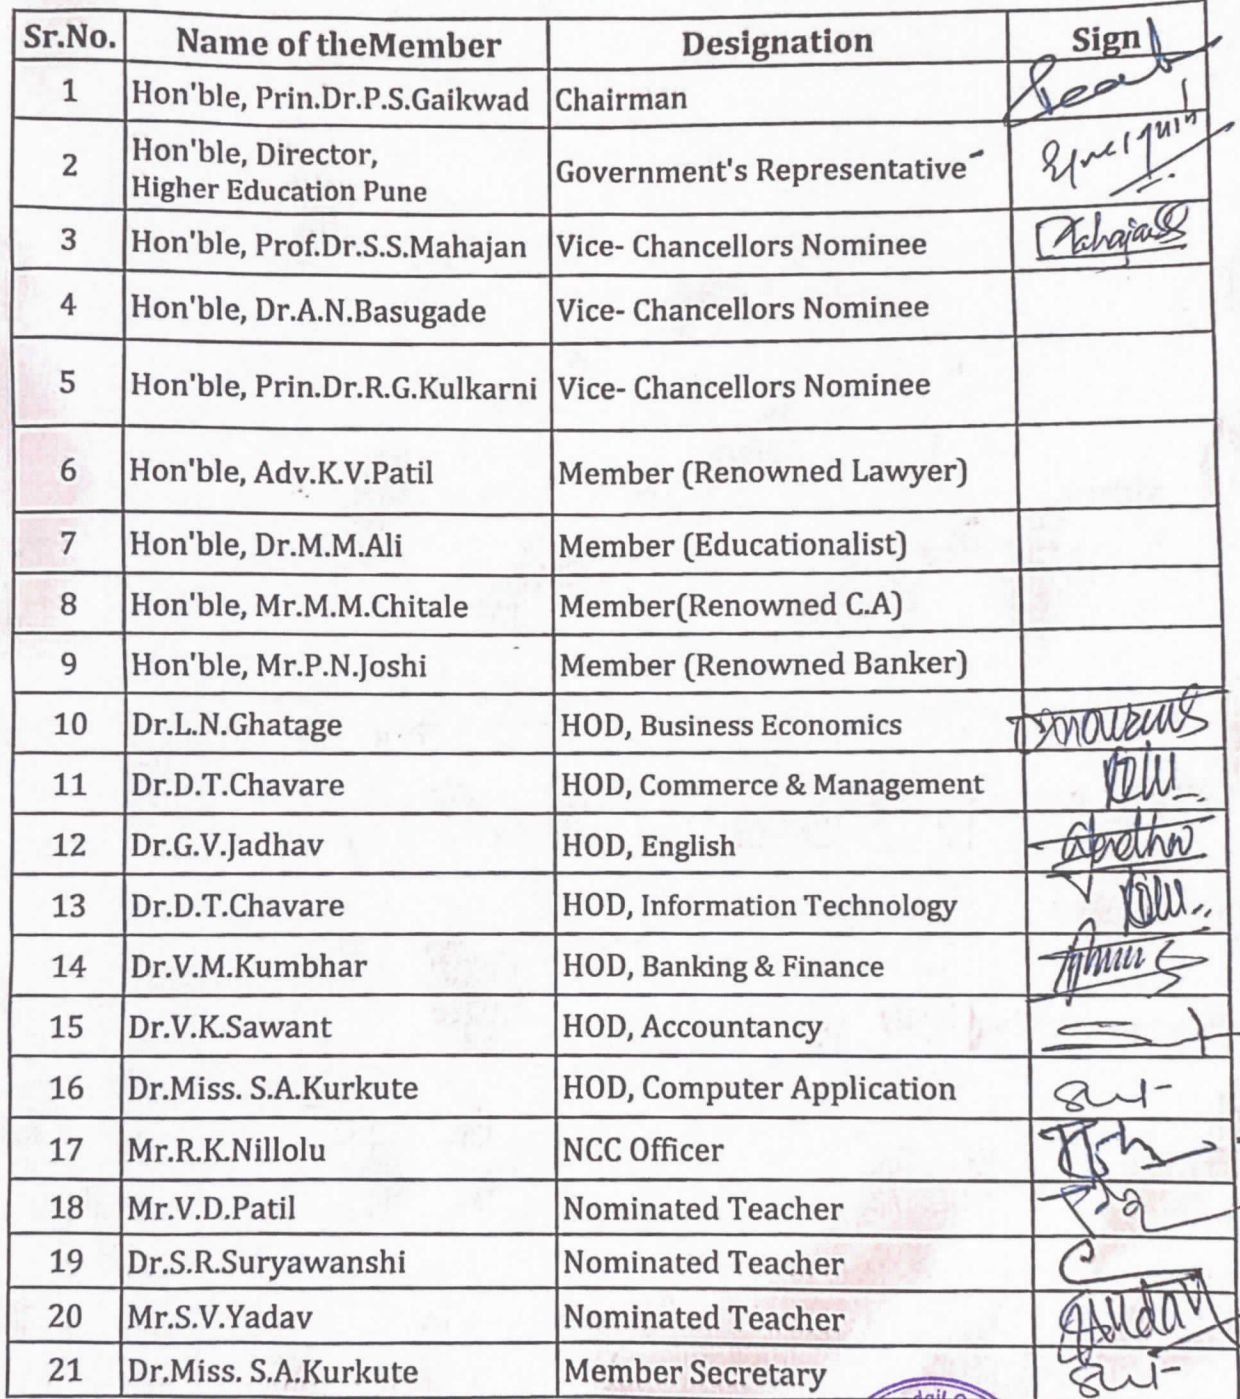 Sr.No. Name of theMember Designation Sign
1 Hon'ble, Prin.Dr.P.S.Gaikwad Chairman
2 Hon'ble, Director,
Higher Education Pune Government's Representative
3 Hon'ble, Prof.Dr.S.S.Mahajan Vice- Chancellors Nominee
4 Hon'ble, Dr.A.N.Basugade Vice- Chancellors Nominee
5 Hon'ble, Prin.Dr.R.G.Kulkarni Vice- Chancellors Nominee
6 Hon'ble, Adv.K.V.Patil Member (Renowned Lawyer)
7 Hon'ble, Dr.M.M.Ali Member (Educationalist)
8 Hon'ble, Mr.M.M.Chitale Member(Renowned C.A)
9 Hon'ble, Mr.P.N.Joshi Member (Renowned Banker)
10 Dr.L.N.Ghatage HOD, Business Economics
11 Dr.D.T.Chavare HOD, Commerce & Management
12 Dr.G.V.Jadhav HOD, English
13 Dr.D.T.Chavare HOD, Information Technology
14 Dr.V.M.Kumbhar HOD, Banking & Finance
15 Dr.V.K.Sawant HOD, Accountancy
16 Dr.Miss. S.A.Kurkute HOD, Computer Application
17 Mr.R.K.Nillolu NCC Officer
18 Mr.V.D.Patil Nominated Teacher
19 Dr.S.R.Suryawanshi Nominated Teacher
20 Mr.S.V.Yadav Nominated Teacher
21 Dr.Miss. S.A.Kurkute Member Secretary